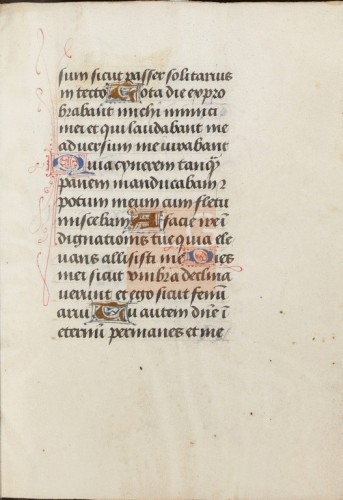 sum sicut passer solitarius
in tecto Tota die expro
brabant michi inimici
mei et qui laudabant me
adversum me iurabant
Quia cynerem tanq̄
panem manducabam ⁊
potum meum cum fletu
miscebam A facie ire ī
dignationis tue quia ele
vans allisisti me Dies
mei sicut umbra declina
verunt et ego sicut fenū
arui Tu autem dn̄e ī
eternū permanes et me